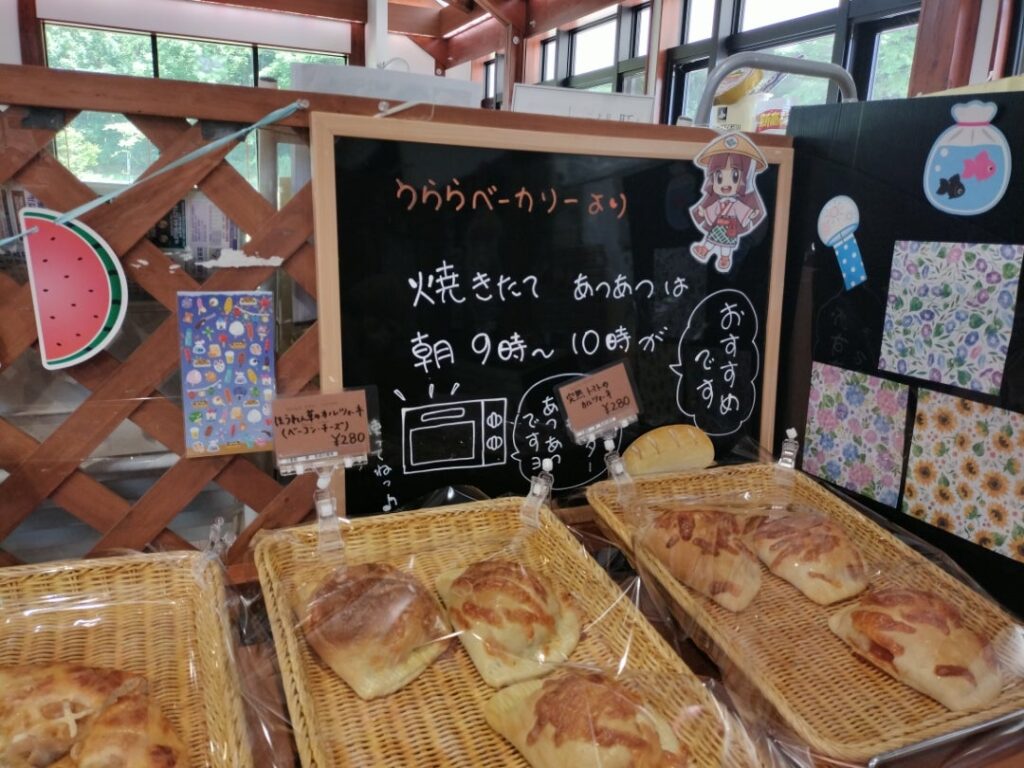 うららベーカリーより
焼きたて あつあつは
朝9時〜10時が
おすすめ
です
あつあつ
ですヨ
ター
てねっ♪
ほうれん草のカルツォーネ
(ベーコン・チーズ)
¥280
完熟トマトの
カルツォーネ
¥280